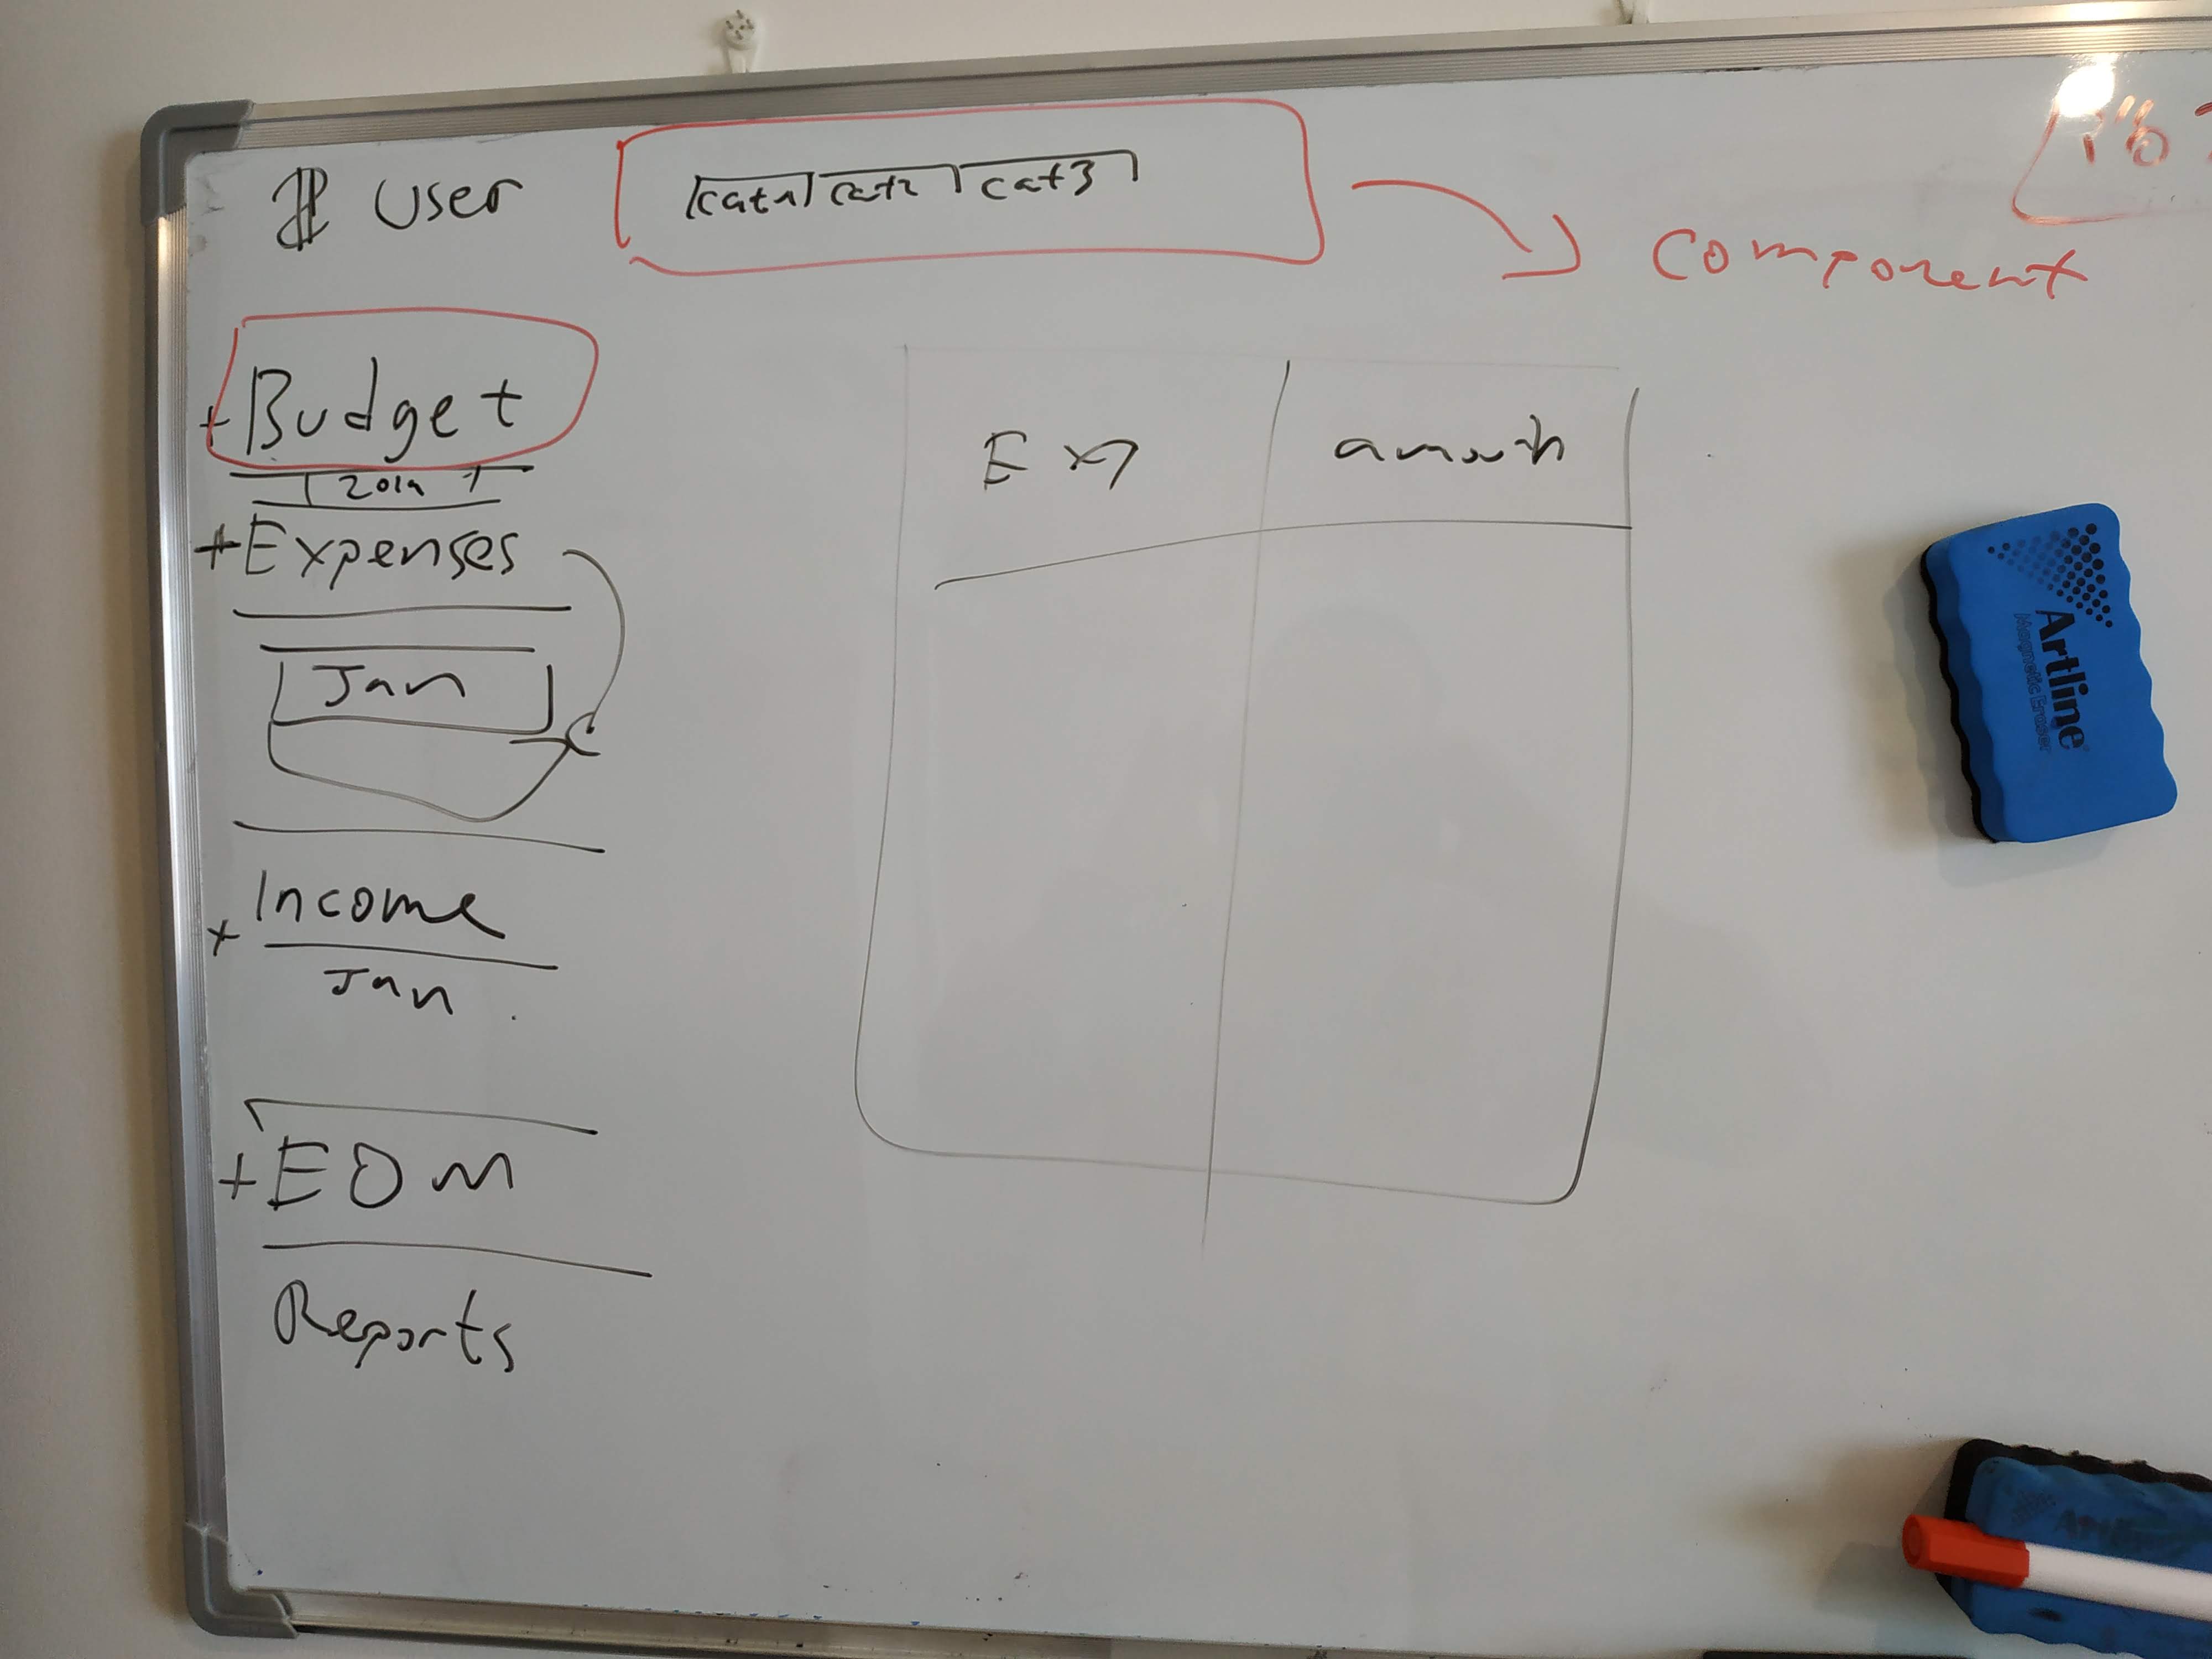 $ User
cat1 cat2 cat3
component
+ Budget
2019
+ Expenses
Jan
+ Income
Jan
+ EOM
Reports
Exp
Artline
Magnetic Eraser